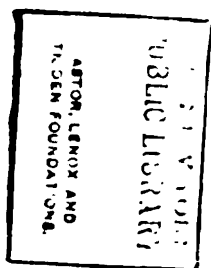 PUBLIC LIBRARY
ASTOR, LENOX AND
TILDEN FOUNDATIONS.